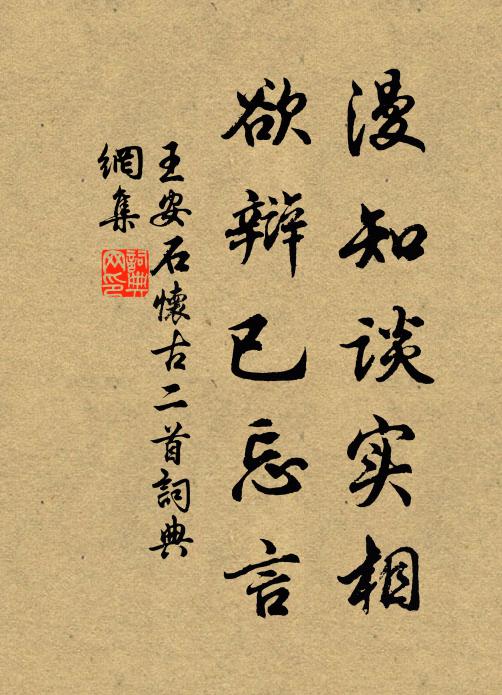 漫知谈实相
欲辩已忘言
王安石懷古二首詞典
網集
詞典
网印